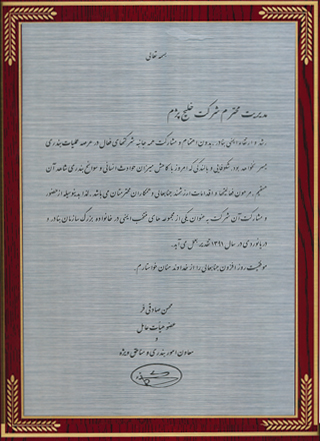 بسمه تعالی
مدیریت محترم شرکت خلیج پژم
رشد و ارتقاء ایمنی بنادر، بدون اهتمام و مشارکت همه جانبه شرکتهای فعال در عرصه عملیات بندری
میسر نخواهد بود. شکوفایی و بالندگی که امروز با کاهش میزان حوادث انسانی و سوانح بندری شاهد آن
هستیم، مرهون فعالیتها و اقدامات ارزشمند جنابعالی و همکاران محترمتان می باشد. لذا بدینوسیله از حضور
و مشارکت آن شرکت به عنوان یکی از مجموعه های منتخب ایمنی در خانواده بزرگ سازمان بنادر و
دریانوردی در سال ۱۳۹۱ تقدیر بعمل می آید.
موفقیت روز افزون جنابعالی را از خداوند منان خواستارم.
محسن صادقی فر
عضو هیأت عامل
و
معاون امور بندری و مناطق ویژه